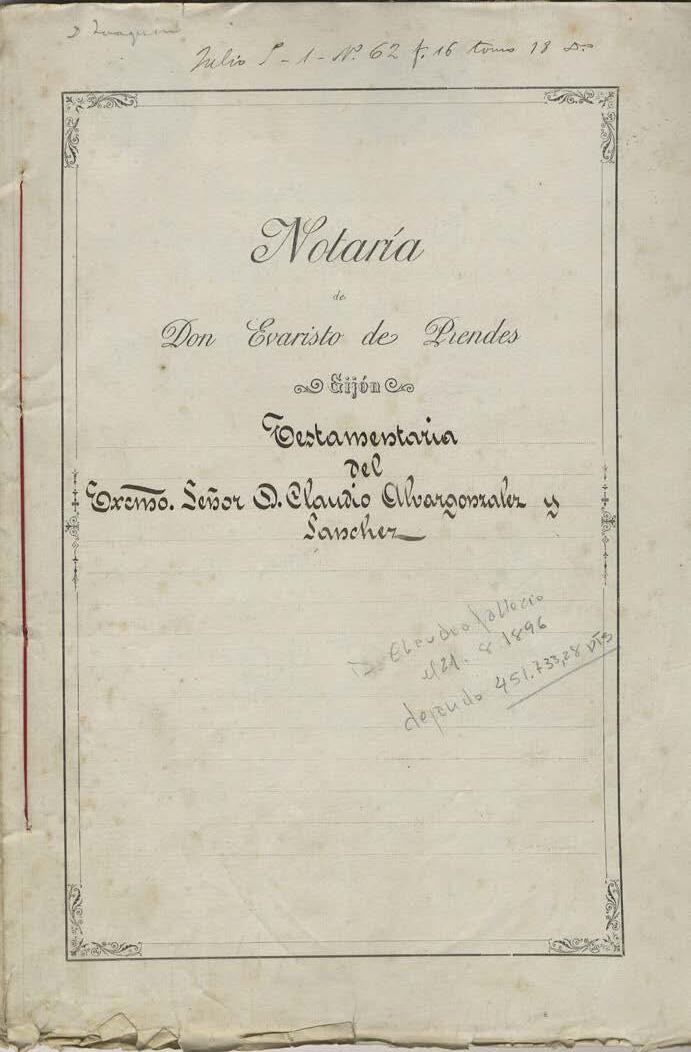 D Joaquin
Julio P - 1 - Nº 62 f. 16 tomo 18 Dº
Notaría
de
Don Evaristo de Prendes
Gijón
Testamentaria
del
Excmo. Señor D. Claudio Alvargonzalez y
Sanchez
D. Claudio fallecio
el 21. 8. 1896
dejando 451.733,28 pts